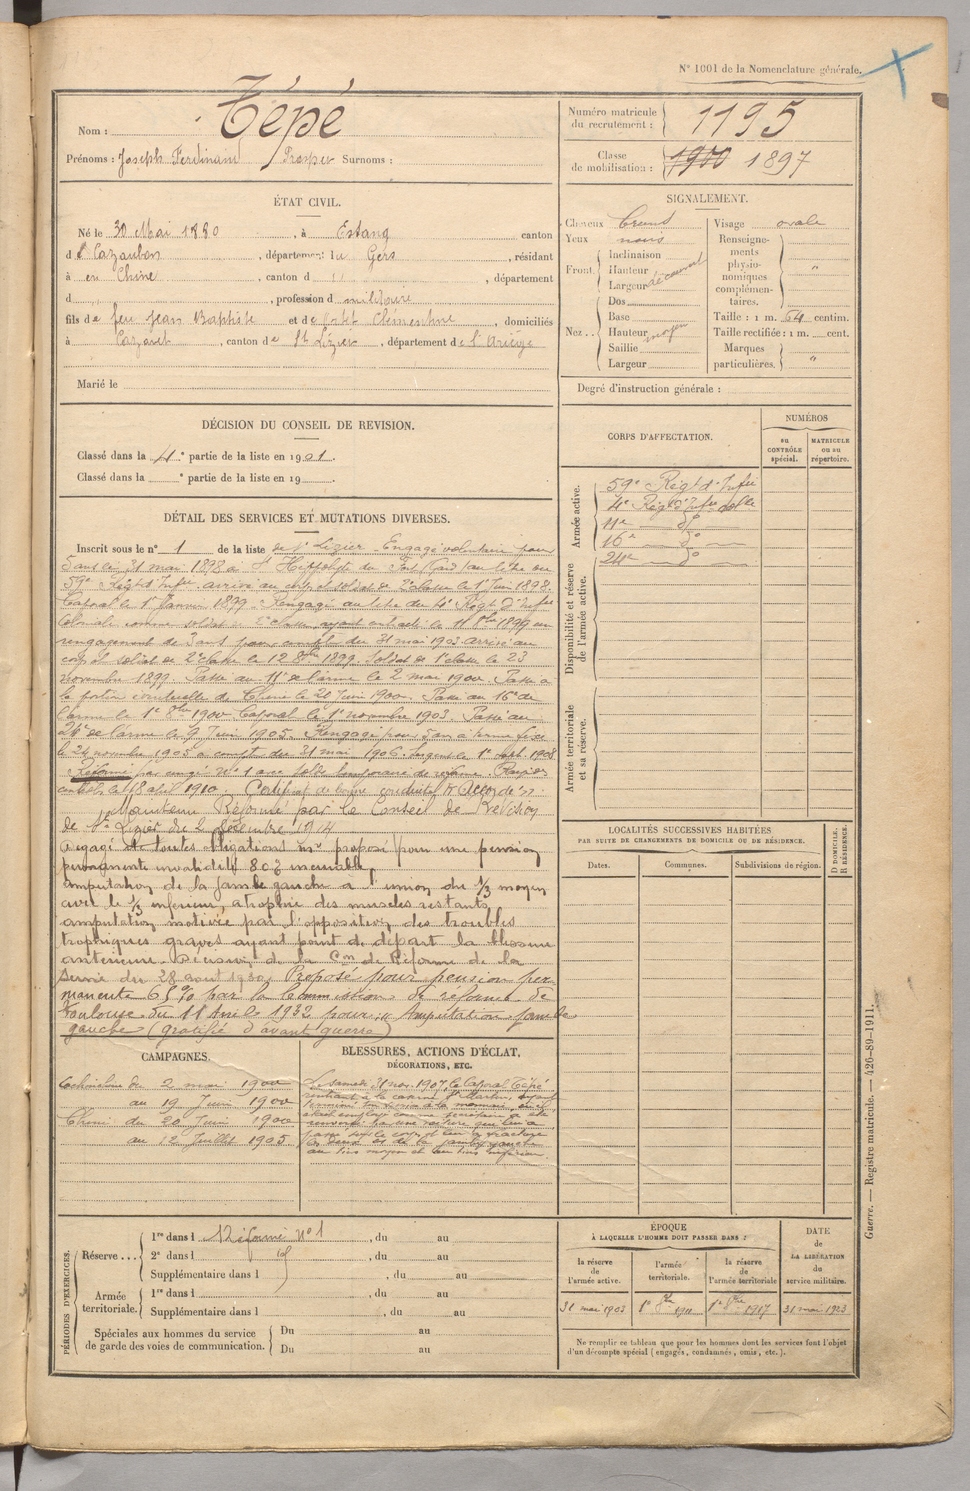 N° 1001 de la Nomenclature générale.
Nom : Tépé
Prénoms : Joseph Ferdinand Prosper Surnoms :
Numéro matricule du recrutement : 1195
Classe de mobilisation : 1900 1897
ÉTAT CIVIL.
Né le 30 Mai 1880, à Estang canton
d e Cazaubon, département du Gers, résidant
à en Chine, canton d " , département
d " , profession d militaire
fils de feu Jean Baptiste et de Clémentine, domiciliés
à Cazavet, canton de St Lizier, département de l'Ariège
Marié le
SIGNALEMENT.
Cheveux bruns
Yeux noirs
Front. Inclinaison
Hauteur
Largeur découvert
Nez . . Dos
Base
Hauteur moyen
Saillie
Largeur
Visage ovale
Renseignements physionomiques complémentaires. "
Taille : 1 m. 64 centim.
Taille rectifiée : 1 m. cent.
Marques particulières. "
Degré d'instruction générale :
DÉCISION DU CONSEIL DE REVISION.
Classé dans la 4e partie de la liste en 1901.
Classé dans la e partie de la liste en 19
CORPS D'AFFECTATION.
NUMÉROS
au CONTRÔLE spécial.
MATRICULE ou au répertoire.
Armée active.
59e Régt d'Infie
4e Régt d'Infie colle
11e do
16e do
24e do
Disponibilité et réserve de l'armée active.
Armée territoriale et sa réserve.
DÉTAIL DES SERVICES ET MUTATIONS DIVERSES.
Inscrit sous le n° 1 de la liste de St Lizier. Engagé volontaire pour
5 ans le 31 mai 1898 à St Hippolyte du Fort (Gard) au titre du
59e Régt d'Infie arrivé au corps et soldat de 2e classe le 1er Juin 1898.
Caporal le 1er Janvier 1899. Rengagé au titre du 4e Régt d'Infie
Coloniale comme soldat de 2e classe ayant contracté le 11 8bre 1899 un
rengagement de 3 ans pour compter du 31 mai 1903. arrivé au
corps et soldat de 2e classe le 12 8bre 1899. Soldat de 1e classe le 23
novembre 1899. Passé au 11e de l'arme le 2 mai 1900. Passé à
la portion centrale de Chine le 20 Juin 1900. Passé au 16e de
l'arme le 1er 8bre 1900. Caporal le 1er novembre 1903. Passé au
24e de l'arme le 9 Juin 1905. Rengagé pour 5 ans à terme fixe
le 24 novembre 1905 à compt. du 31 mai 1906. Sergent le 1er sept. 1908
Réformé par congé N° 1 avec solde temporaire de réforme. Rayé des
contrôles le 18 avril 1910. Certificat de bonne conduite Accordé.
Maintenu Réformé par le Conseil de Révision
de St Lizier du 2 décembre 1914
Dégagé de toutes obligations mres proposé pour une pension
permanente invalidité 80% incurable,
amputation de la jambe gauche à l'union du 1/3 moyen
avec le 1/3 inférieur, atrophie des muscles restants,
amputation motivée par l'apposition des troubles
trophiques graves ayant point de départ la blessure
antérieure. Décision de la Con de Réforme de la
Seine du 28 août 1930. Proposé pour pension per-
manente 65% par la Commission de réforme de
Toulouse du 11 Avril 1932 pour : Amputation jambe
gauche (gratifié d'avant guerre)
LOCALITÉS SUCCESSIVES HABITÉES
PAR SUITE DE CHANGEMENTS DE DOMICILE OU DE RÉSIDENCE.
Dates.
Communes.
Subdivisions de région.
D DOMICILE.
R RÉSIDENCE.
CAMPAGNES.
Cochinchine du 2 mai 1900
au 19 Juin 1900
Chine du 20 Juin 1900
au 12 Juillet 1905
BLESSURES, ACTIONS D'ÉCLAT,
DÉCORATIONS, ETC.
Le samedi 31 nov. 1907, le Caporal Tépé
rentrant à la caserne St Martin, ayant
terminé son service
était employé comme secrétaire a été
renversé par une voiture qui lui a
passé sur le corps et eu la fracture
des deux os de la jambe gauche
au tiers moyen et au tiers inférieur.
PÉRIODES D'EXERCICES.
Réserve . . . 1re dans l Réformé N° 1, du au
2e dans l , du au
Supplémentaire dans l , du au
Armée territoriale. 1re dans l , du au
Supplémentaire dans l , du au
Spéciales aux hommes du service de garde des voies de communication. Du au
Du au
ÉPOQUE
À LAQUELLE L'HOMME DOIT PASSER DANS :
la réserve de l'armée active.
l'armée territoriale.
la réserve de l'armée territoriale
DATE de LA LIBÉRATION du service militaire.
31 mai 1903
1er 8bre 1911
1er 8bre 1917
31 mai 1923
Ne remplir ce tableau que pour les hommes dont les services font l'objet
d'un décompte spécial (engagés, condamnés, omis, etc.).
Guerre. — Registre matricule. — 426-89-1911.